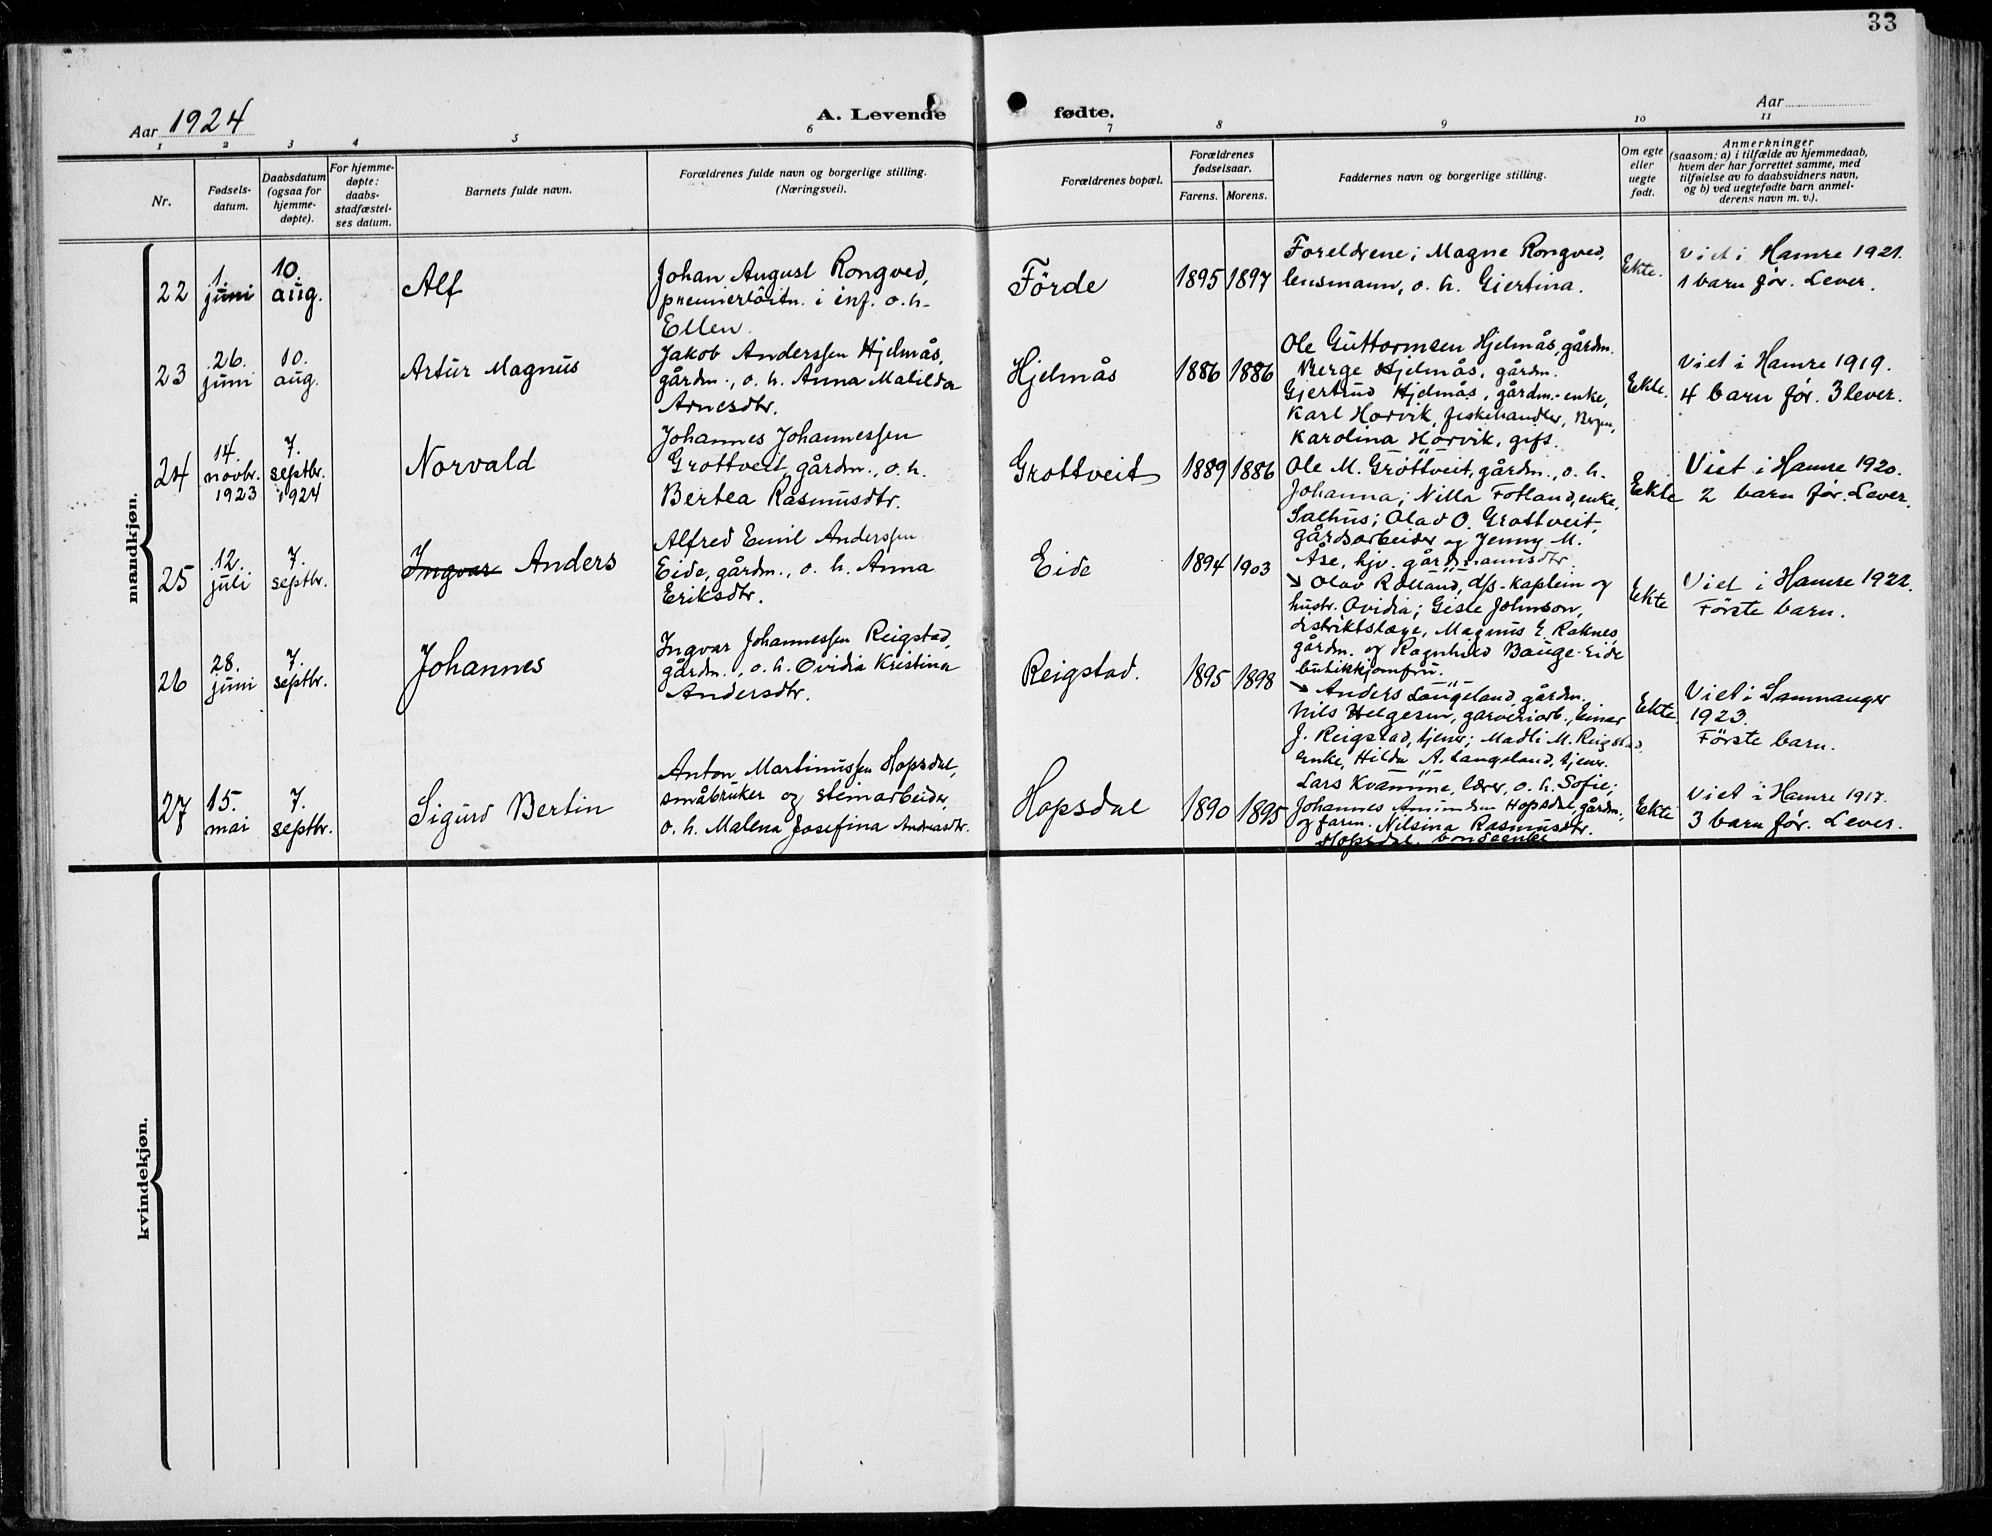 33
Aar 1924
A. Levende fødte.
Aar
1 2 3 4 5 6 7 8 9 10 11
Nr.
Fødsels-
datum.
Daabsdatum
(ogsaa for
hjemme-
døpte).
For hjemme-
døpte:
daabs-
stadfæstel-
ses datum.
Barnets fulde navn.
Forældrenes fulde navn og borgerlige stilling.
(Næringsvei).
Forældrenes bopæl.
Forældrenes
fødselsaar.
Farens. Morens.
Faddernes navn og borgerlige stilling.
Om egte
eller
uegte
født.
Anmerkninger
(saasom: a) i tilfælde av hjemmedaab,
hvem der har forrettet samme, med
tilføielse av to daabsvidners navn,
og b) ved uegtefødte barn anmel-
derens navn m. v.).
mandkjøn.
22
1
juni
10.
aug.
Alf
Johan August Rongved,
premierlöitn. i inf. o. h.
Ellen
Förde
1895 1897
Foreldrene; Magne Rongved,
lensmann, o. h. Gjertina.
Ekte.
Viet i Hamre 1921.
1 barn før. Lever.
23
26.
juni
10.
aug.
Artur Magnus
Jakob Anderssen Hjelmås,
gårdm., o. h. Anna Matilda
Arnesdtr.
Hjelmås
1886 1886
Ole Guttormsen Hjelmås, gårdm.
Berge Hjelmås, gårdm.
Gjertrud Hjelmås, gårdm.-enke,
Karl Horvik, fiskehandler, Bergen,
Karolina Horvik, gift.
Ekte.
Viet i Hamre 1919.
4 barn før. 3 lever.
24
14.
novbr.
1923
7.
septbr.
1924
Norvald
Johannes Johannessen
Grottveit, gårdm., o. h.
Bertea Rasmusdtr.
Grottveit
1889 1886
Ole M. Grottveit, gårdm., o. h.
Johanna; Nilla Fotland, enke,
Salhus; Olav O. Grottveit,
gårdsarbeider og Jenny M.
Åse, hjv. gårdmannsdtr.
Ekte
Viet i Hamre 1920.
2 barn før. Lever.
25
12.
juli
7.
septbr.
Ingvar Anders
Alfred Emil Anderssen
Eide, gårdm., o. h. Anna
Eriksdtr.
Eide
1894 1903
Olav Rolland, d/s-kaptein og
hustr. Ovidia; Gisle Johnson,
distriktslæge, Magnus E. Raknes,
gårdm. og Ragnhild Bauge-Eide
butikkjomfru.
Ekte
Viet i Hamre 1922.
Förste barn.
26
28.
juni
7.
septbr.
Johannes
Ingvar Johannessen Reigstad,
gårdm., o. h. Ovidia Kristina
Andersdtr.
Reigstad.
1895 1898
Anders Langeland, gårdm.
Nils Helgesen, garveriarb., Einar
J. Reigstad, tjener; Madli M. Reigstad,
enke, Hilda A. Langeland, tjener.
Ekte.
Viet i Samnanger
1923.
Förste barn.
27
15.
mai
7.
septbr.
Sigurd Bertin
Anton Martinussen Hopsdal,
småbruker og steinarbeider,
o. h. Malena Josefina Andreasdtr.
Hopsdal
1890 1895
Lars Kvamme, lærer, o. h. Sofie;
Johannes Hopsdal, gårdm.,
og faren. Nilsina Rasmusdtr.
Hopsdal, bondeenke
Ekte
Viet i Hamre 1917.
3 barn før. Lever.
kvindekjøn.